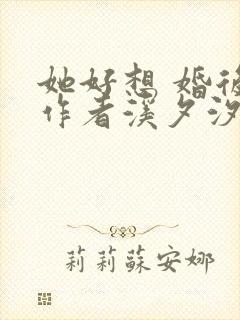 她好想 婚後
作者溪夕汐
莉莉蘇安娜